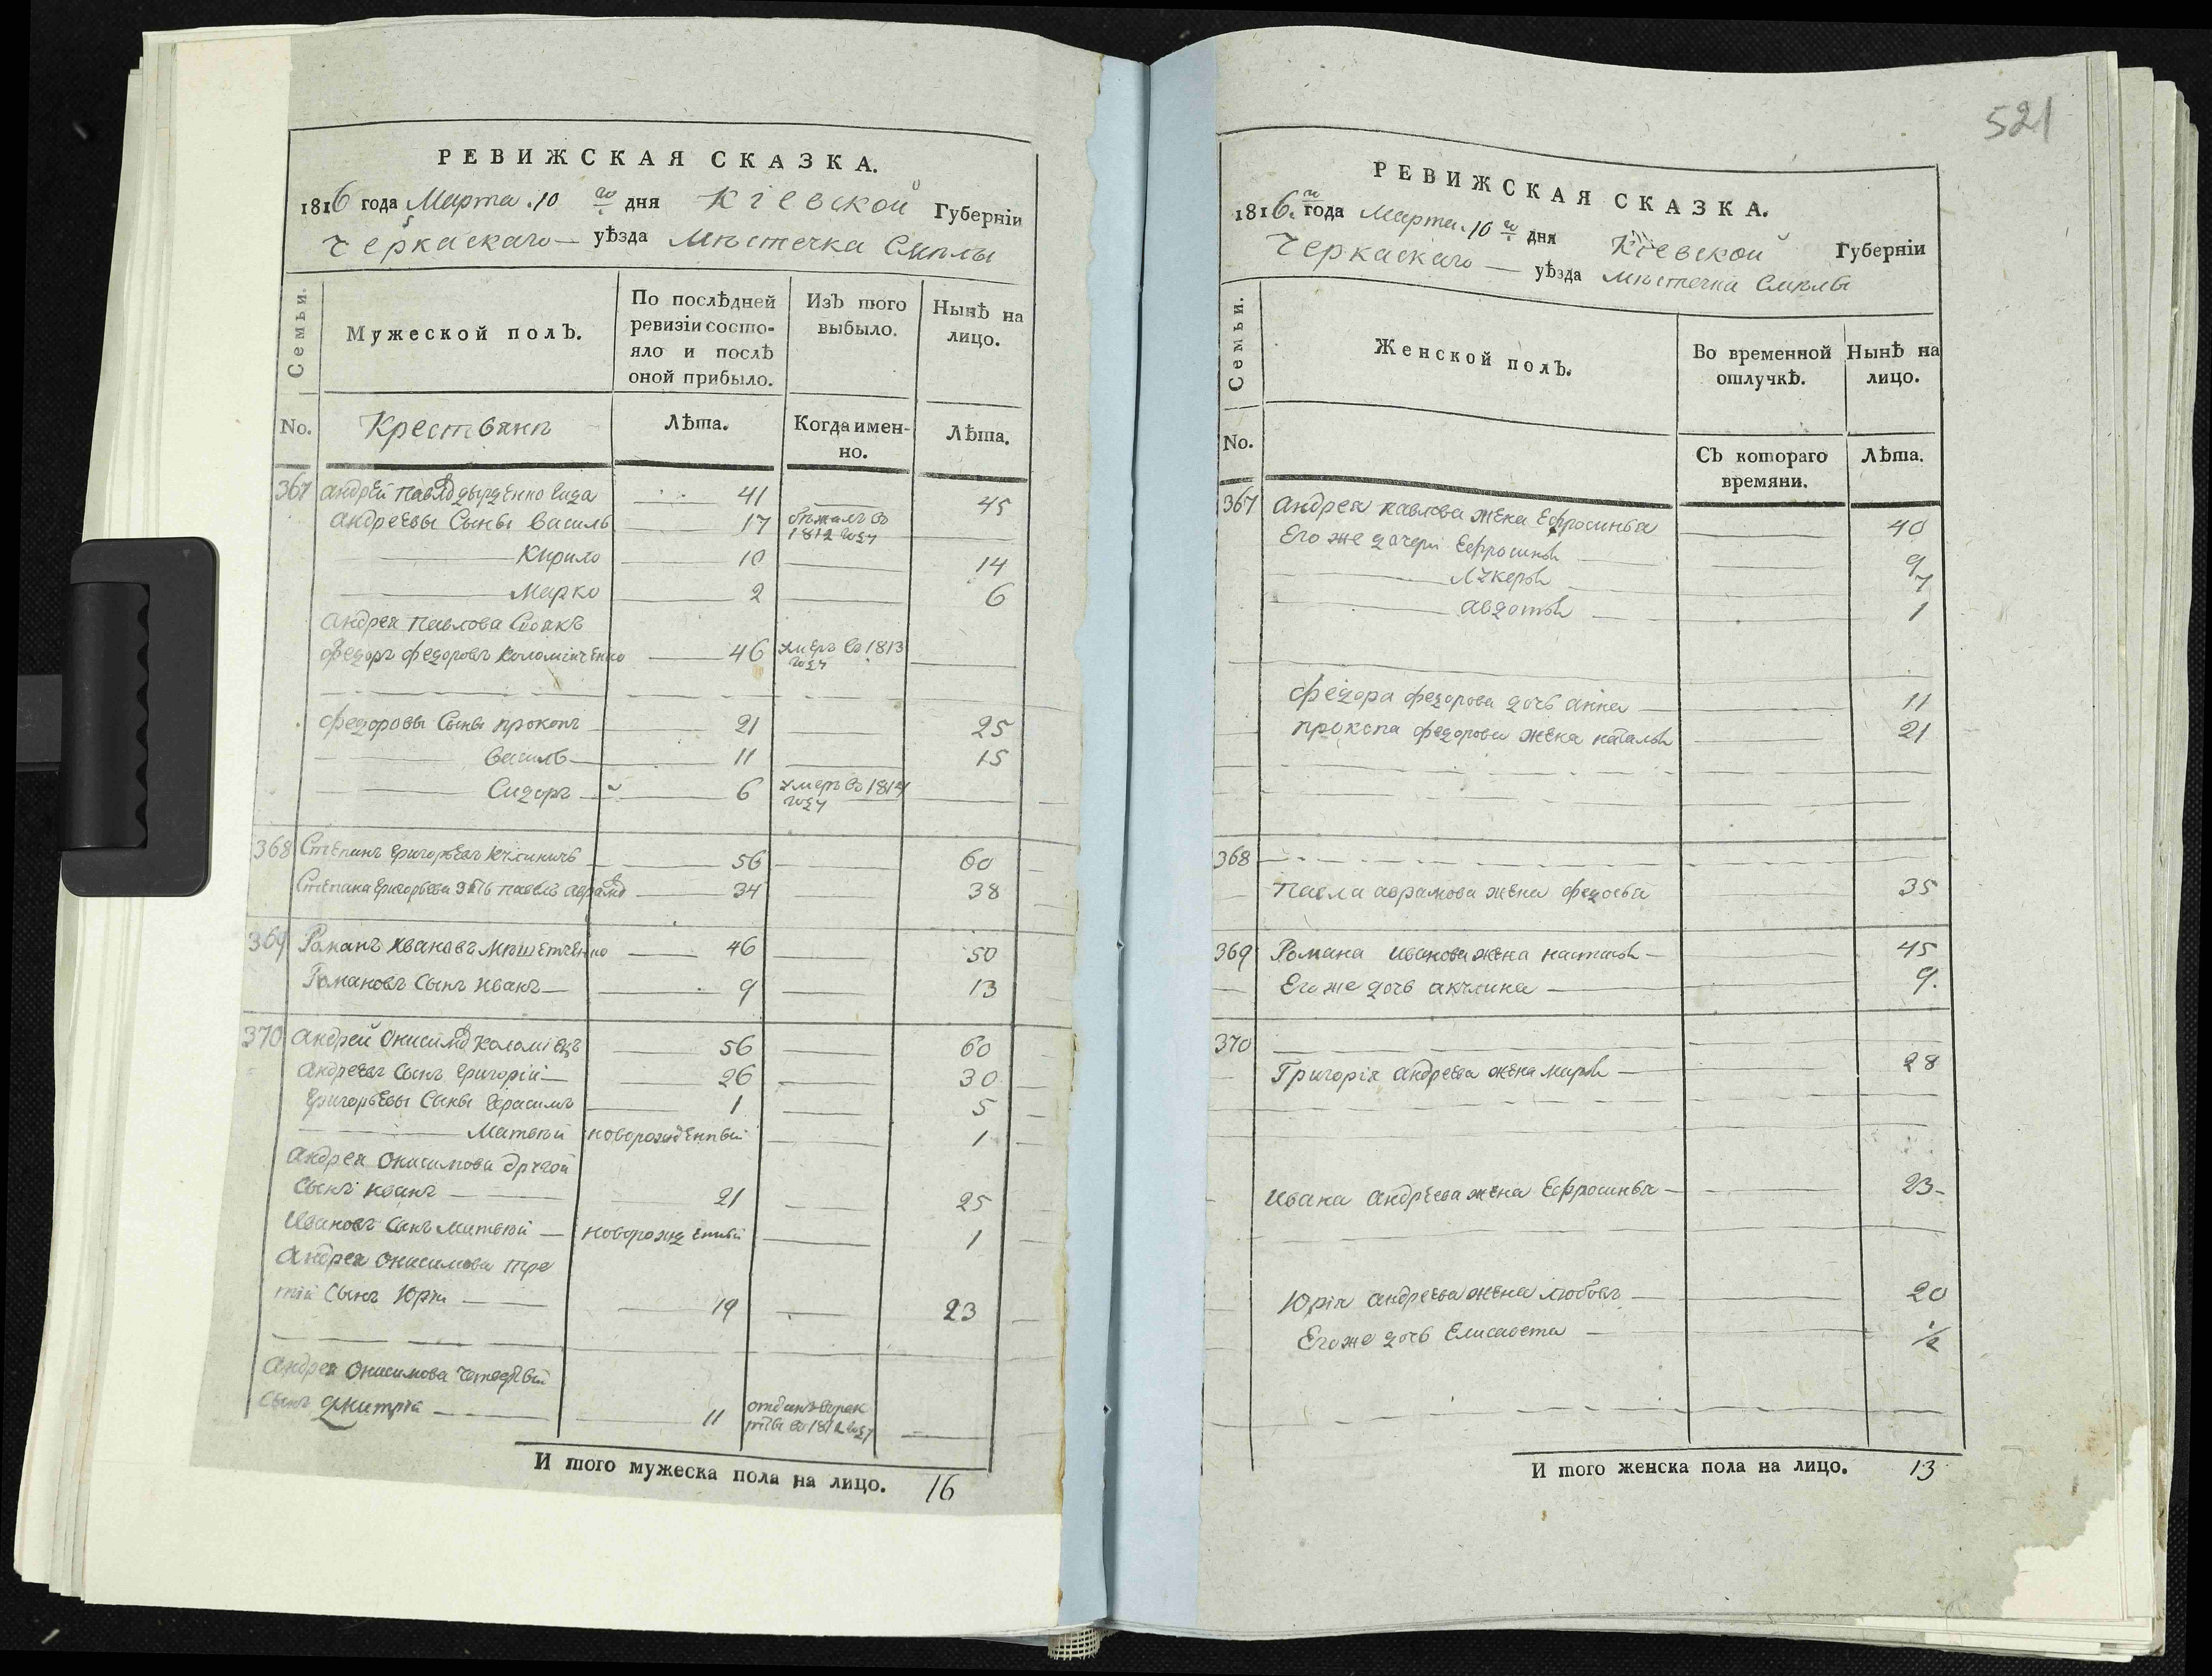 521
РЕВИЖСКАЯ СКАЗКА.
1816 года Марта 10 го дня Кіевской Губерніи
Черкаскаго — уѣзда Мѣстечка Смѣлы
Семьи.
Мужеской полЪ.
По послѣдней ревизіи состояло и послѣ оной прибыло.
ИзЪ того выбыло.
Нынѣ на лицо.
No.
Крестьянъ
Лѣта.
Когда именно.
Лѣта.
367 Андрей Павловъ 41 45
Андреевы Сыны Василь 17 бѣжалъ въ 1812 году
Кирило 10 14
Марко 2 6
Андрея Павлова Своякъ
Федоръ Федоровъ Коломійченко 46 умеръ въ 1813 году
Федоровы Сыны Прокопъ 21 25
Василь 11 15
Сидоръ 6 умеръ въ 1814 году
368 Степанъ Григорьевъ 56 60
Степана Григорьева зять Павелъ Аврамовъ 34 38
369 Романъ Ивановъ 46 50
Романовъ Сынъ Иванъ 9 13
370 Андрей Онисимовъ Коломіецъ 56 60
Андреевъ Сынъ Григорій 26 30
Григорьевы Сыны Герасимъ 1 5
Матвѣй новорожденный 1
Андрея Онисимова другой
Сынъ Иванъ 21 25
Ивановъ Сынъ Матвѣй новорожденный 1
Андрея Онисимова тре
тій Сынъ Юрій 19 23
Андрея Онисимова четвертый
Сынъ Дмитрій 11 отданъ въ рекруты въ 1812 году
И того мужеска пола на лицо. 16
РЕВИЖСКАЯ СКАЗКА.
1816 го года Марта 10 го дня Кіевской Губерніи
Черкаскаго — уѣзда Мѣстечка Смѣлы
Семьи.
Женской полЪ.
Во временной отлучкѣ.
Нынѣ на лицо.
No.
СЪ котораго времяни.
Лѣта.
367 Андрея Павлова жена Ефросинья 40
Его же дочери Ефросинья 9
Лукерья 7
Авдотья 1
Федора Федорова дочь Анна 11
Прокопа Федорова жена Наталья 21
368
Павла Аврамова жена Федосья 35
369 Романа Иванова жена Настасья 45
Его же дочь Акулина 9.
370
Григорія Андреева жена Марья 28
Ивана Андреева жена Ефросинья 23
Юрія Андреева жена Любовь 20
Его же дочь Елисавета ½
И того женска пола на лицо. 13